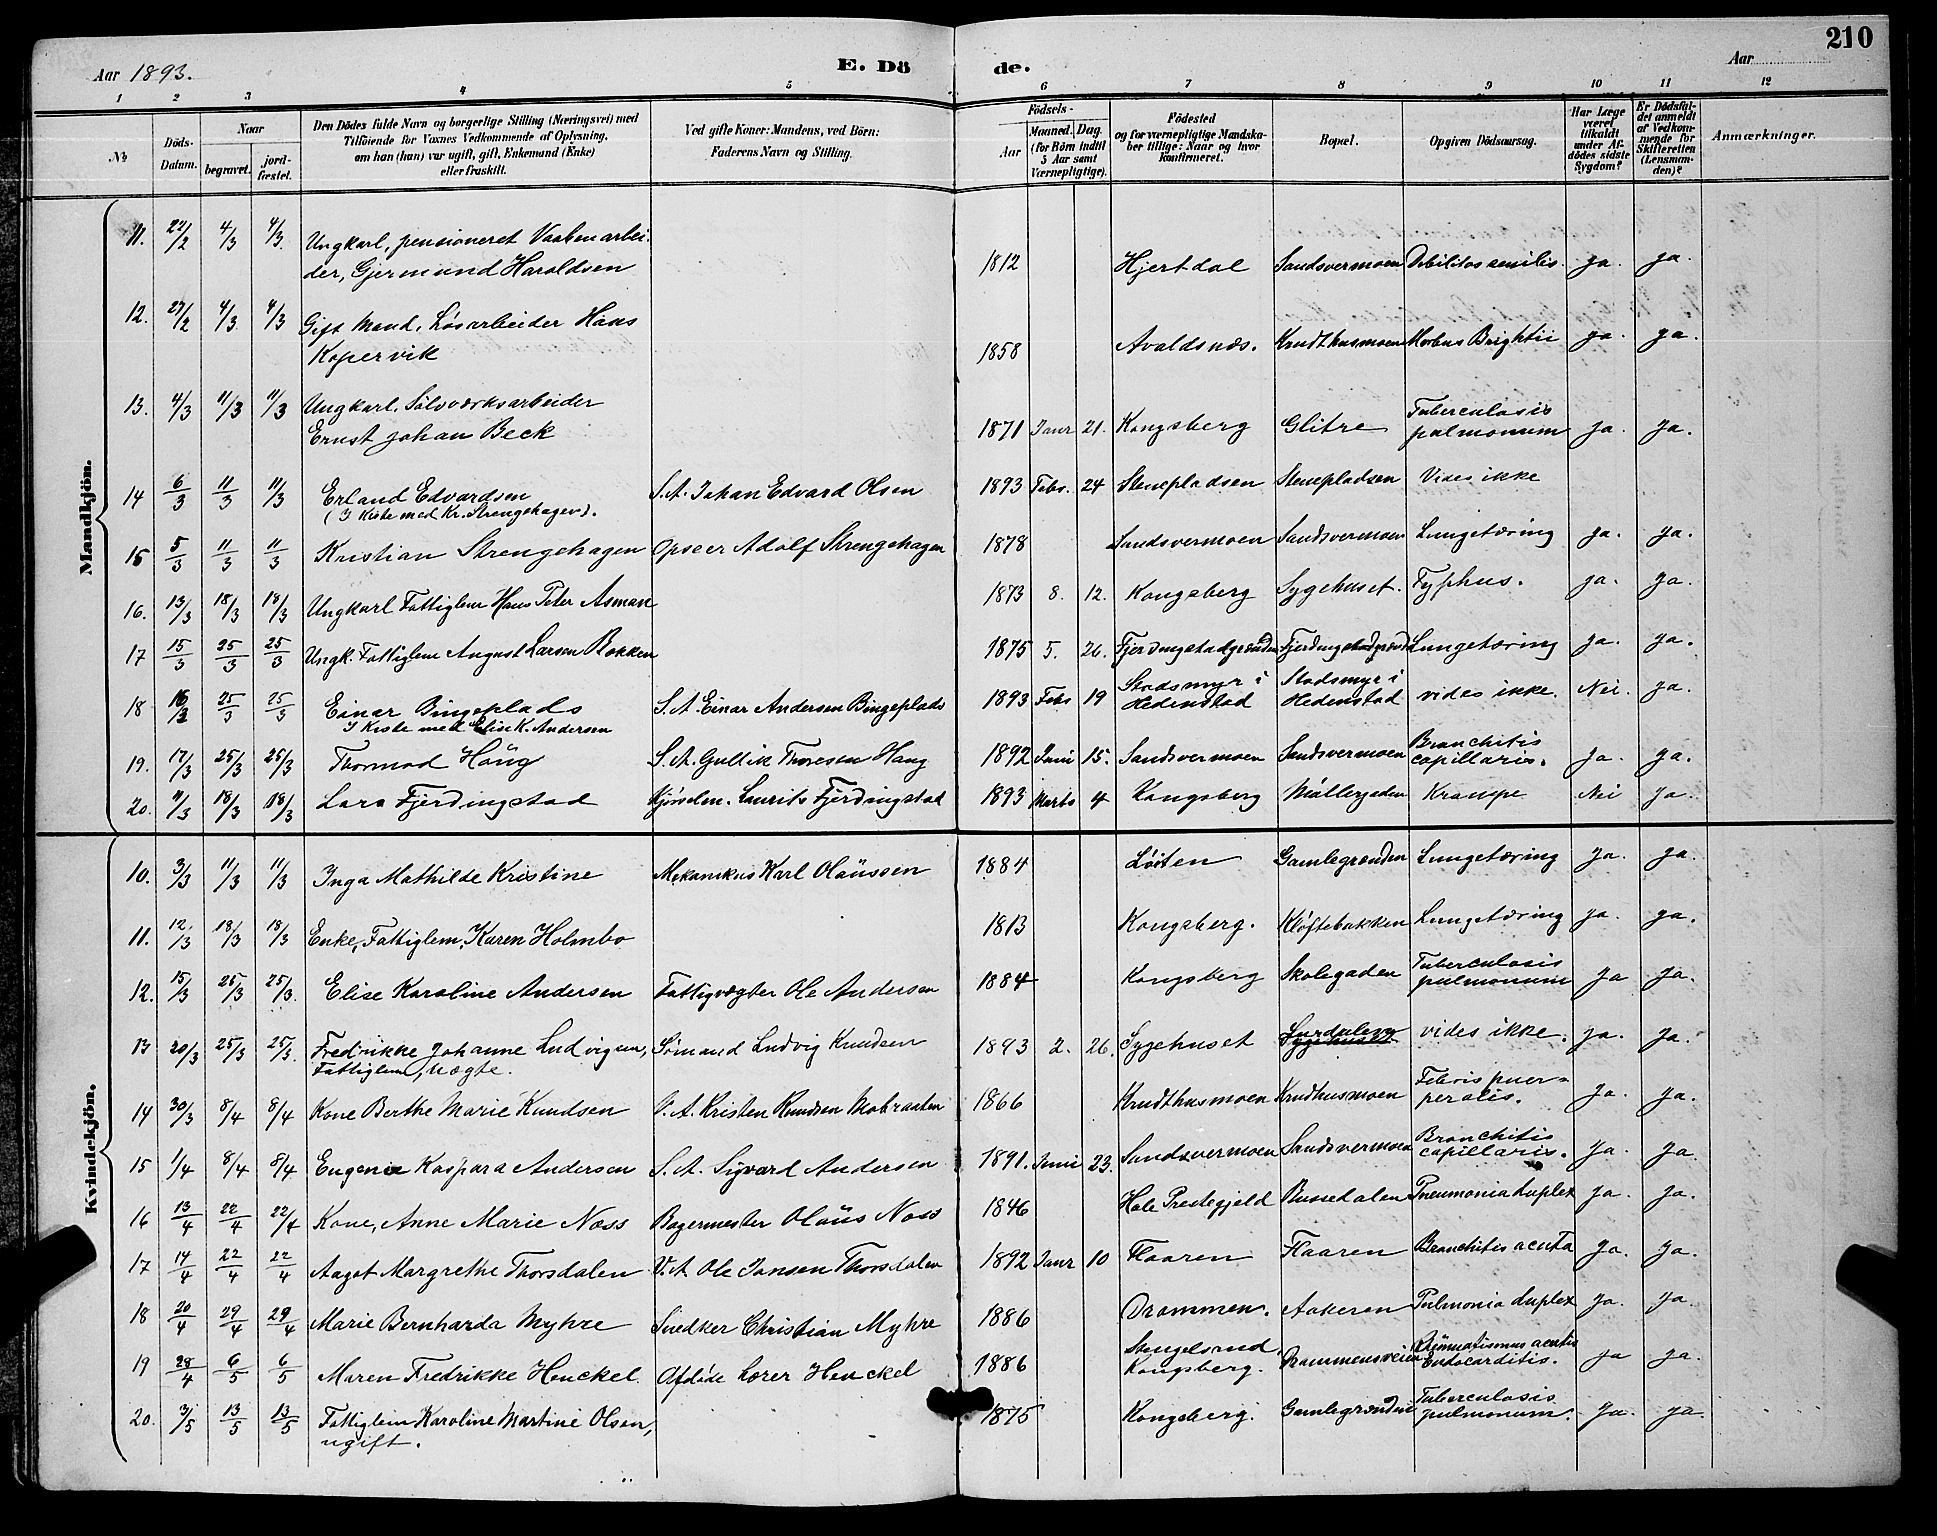 210
Aar 1893. E. Dö de. Aar
1 2 3 4 5 6 7 8 9 10 11 12
No
Döds-Datum.
Naar begravet. jordfæstet.
Den Dödes fulde Navn og borgerlige Stilling (Næringsvei) med Tilföiende for Voxnes Vedkommende af Oplysning, om han (hun) var ugift, gift, Enkemand (Enke) eller fraskilt.
Ved gifte Koner: Mandens, ved Börn: Faderens Navn og Stilling.
Födsels-
Aar Maaned. Dag. (for Börn indtil 5 Aar samt Værnepligtige).
Födested og for værnepligtige Mandskaber tillige: Naar og hvor konfirmeret.
Bopæl.
Opgiven Dödsaarsag.
Har Læge været tilkaldt under Afdödes sidste Sygdom?
Er Dödsfaldet anmeldt af Vedkommende for Skifteretten (Lensmanden)?
Anmærkninger.
Mandkjön.
11. 22/2 4/3 4/3 Ungkarl, pensioneret Vaabenarbei-
der, Gjermund Haroldsen 1812 Hjertdal Sandsvermoen Debilitas senilis. ja. ja.
12. 27/2 4/3 4/3 Gift Mand, Løsarbeider Hans
Kopervik 1858 Avaldsnæs. Krudthusmoen Morbus Brightii ja. ja.
13. 4/3 11/3 11/3 Ungkarl, Sølvværksarbeider
Ernst Johan Beck 1871 Janr 21. Kongsberg Glitre Tuberculosis pulmonum ja. ja.
14 6/3 11/3 11/3 Erland Edvardsen S.A. Johan Edvard Olsen 1893 Febr. 24 Stenepladsen Stenepladsen Vides ikke
(I Kiste med Kr. Strengehagen).
15 5/3 11/3 11/3 Kristian Strengehagen Opseer Adolf Strengehagen 1878 Sandsvermoen Sandsvermoen Lungetæring ja. ja.
16. 13/3 18/3 18/3 Ungkarl Fattiglem Hans Peter Asman 1873 8. 12. Kongsberg Sygehuset. Typhus. ja. ja.
17 15/3 25/3 25/3 Ungk. Fattiglem August Larsen Bokken 1875 5. 26. Fjerdingstadgrænden Fjerdingstadgrænd Lungetæring ja. ja.
18 16/3 25/3 25/3 Einar Bingeplads S.A. Einar Andersen Bingeplads 1893 Febr 19 Stadsmyr i Hedenstad Stadsmyr i Hedenstad vides ikke. Nei. ja.
I Kiste med Elise K. Andersen
19. 17/3 25/3 25/3 Thormod Haug S.A. Gullik Thoresen Haug 1892 Juni 15. Sandsvermoen Sandsvermoen Bronchitis capillaris. ja. ja.
20. 11/3 18/3 18/3 Lars Fjerdingstad Kjørselm. Laurits Fjerdingstad 1893 Marts 4 Kongsberg Møllergaden Krampe Nei ja.
Kvindekjön.
10. 3/3 11/3 11/3 Inga Mathilde Kristine Mekanikus Karl Olaussen 1884 Løiten Gamlegrænden Lungetæring ja. ja.
11. 12/3 18/3 18/3 Enke, Fattiglem, Karen Holmbo 1813 Kongsberg. Kløftebakken Lungetæring ja. ja.
12. 15/3 25/3 25/3. Elise Karoline Andersen Fattigvægter Ole Andersen 1884 Kongsberg Skolegaden Tuberculosis pulmonum ja ja.
13 20/3 25/3 25/3. Fredrikke Johanne Ludvigsen, Sømand Ludvig Knudsen 1893 2. 26. Sygehuset vides ikke. ja. ja.
Fattiglem, uægte.
14 30/3 8/4 8/4 Kone Berthe Marie Kundsen V.A. Kristen Knudsen Mobraaten 1866 Krudthusmoen Krudhusmoen Febris puerperalis. ja. ja.
15 1/4 8/4 8/4 Eugenie Kaspara Andersen S.A. Sigvard Andersen 1891. Juni 23. Sandsvermoen Sandsvermoen Bronchitis capillaris. ja. ja.
16 13/4 22/4 22/4 Kone, Anne Marie Næss Bagermester Olaus Næss 1846 Hole Prestegjeld Bussedalen Pneumonia duplex ja. ja.
17 14/4 22/4 22/4 Aagot Margrethe Thorsdalen V.A Ole Jansen Thorsdalen 1892 Janr 10 Flaaren Flaaren Bronchitis acuta ja. ja.
18 20/4 29/4 29/4 Marie Bernharda Myhre Snedker Christian Myhre 1886 Drammen. Aakeren Pulmonia duplex ja. ja.
19 28/4 6/5 6/5 Maren Fredrikke Henckel. Afdøde Lærer Henckel 1886 Kongsberg. Drammensveien Rheumatismus acutis Endocarditis. ja ja.
20. 3/5 13/5 13/5 Fattiglem Karoline Martine Olsen, 1875 Kongsberg. Gamlegrænden Tuberculosis pulmonum. ja. ja.
ugift.